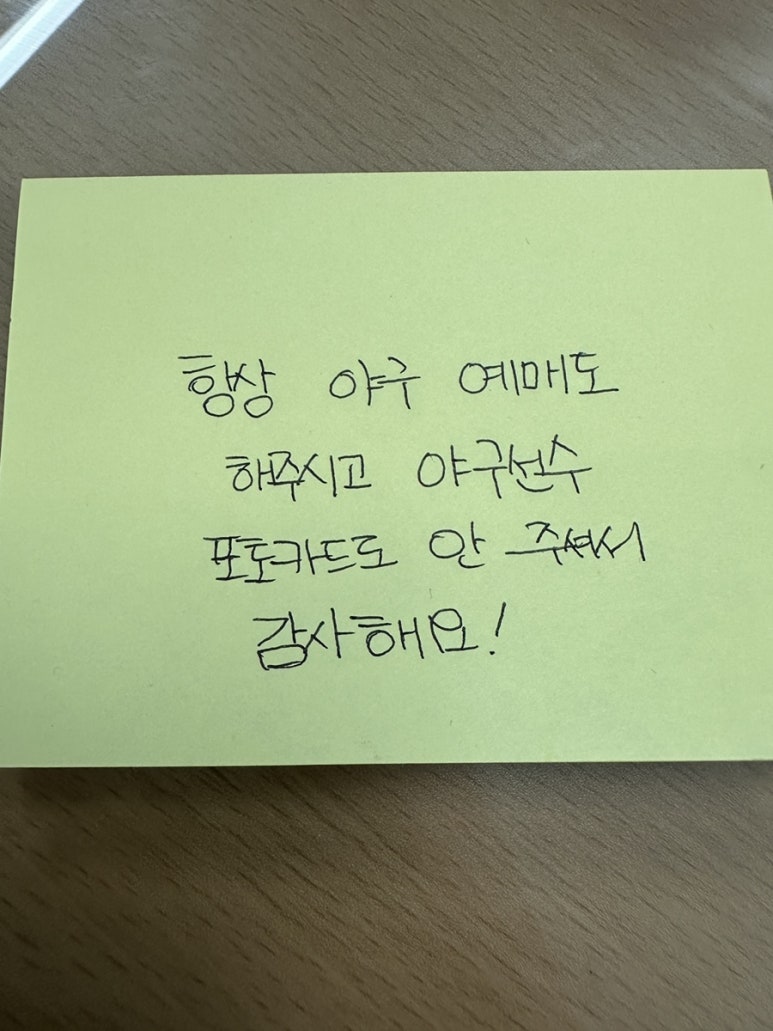 항상 야구 예매도
해주시고 야구선수
포토카드도 안 주셔서
감사해요!